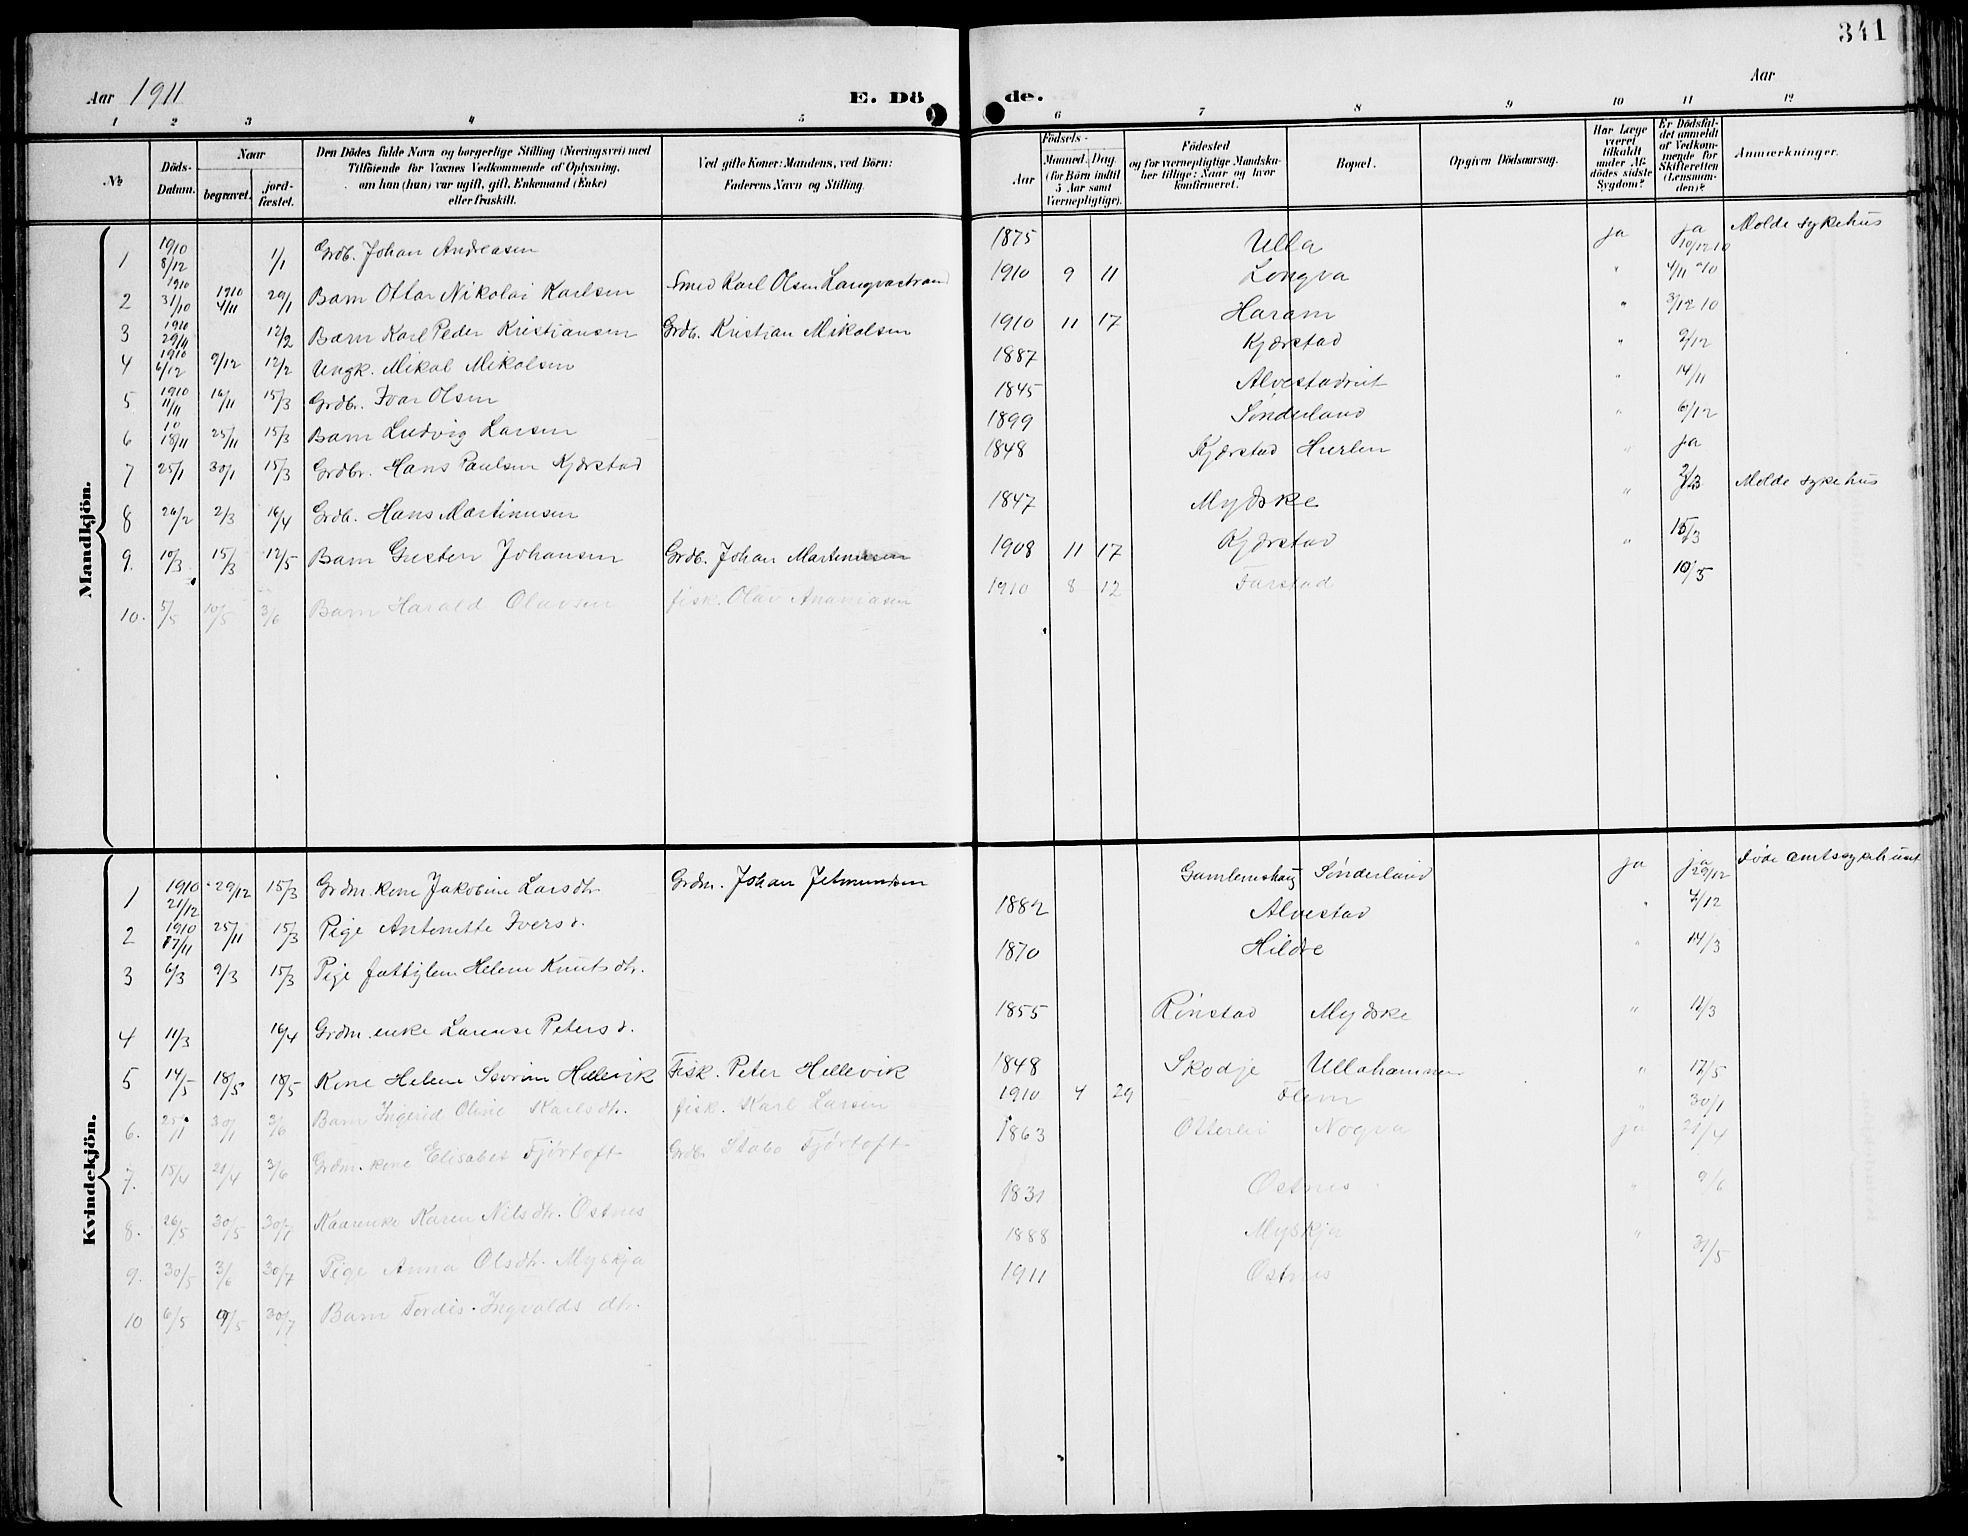 341
Aar 1911
E. Dö
de.
Aar
1 2 3 4 5 6 7 8 9 10 11 12
№
Döds-Datum.
Naar
begravet.
jord-fæstet.
Den Dödes fulde Navn og borgerlige Stilling (Næringsvei) med
Tilföiende for Voxnes Vedkommende af Oplysning,
om han (hun) var ugift, gift, Enkemand (Enke)
eller fraskilt.
Ved gifte Koner: Mandens, ved Börn:
Faderens Navn og Stilling.
Födsels-
Aar
Maaned. Dag.
(for Börn indtil
5 Aar samt
Værnepligtige).
Födested
og for værnepligtige Mandska-
ber tillige: Naar og hvor
konfirmeret.
Bopæl.
Opgiven Dödsaarsag.
Har Læge
været
tilkaldt
under Af-
dödes sidste
Sygdom?
Er Dödsfal-
det anmeldt
af Vedkom-
mende for
Skifteretten
(Lensman-
den)?
Anmærkninger.
Mandkjön.
1 1910 8/12 1/1 Grdb. Johan Andreasen 1875 Ulla ja ja 10/12 10 Molde sykehus
2 1910 31/10 1910 4/11 29/1 Barn Ottar Nikolai Karlsen Smed Karl Olsen Longvastrand 1910 9 11 Longva " 4/11 10
3 1910 29/11 12/2 Barn Karl Peder Kristiansen Grdb. Kristian Mikalsen 1910 11 17 Haram " 3/12 10
4 1910 6/12 9/12 12/2 Ungk. Mikal Mikalsen 1887 Kjærstad " 9/12
5 1910 11/11 16/11 15/3 Grdbr. Ivar Olsen 1845 " 14/11
6 10 18/11 25/11 15/3 Barn Ludvig Larsen 1899 Sønderland " 6/12
7 25/1 30/1 15/3 Grdbr. Hans Paulsen Kjærstad 1848 Kjærstad Hurlen " ja
8 26/2 2/3 16/4 Grdb. Hans Martinusen 1847 Mydske " Molde sykehus
9. 10/3 15/3 12/5 Barn Gusten Johansen Grdb. Johan Martinusen 1908 11 17 Kjærstad " 15/3
10. 5/5 10/5 3/6 Barn Harald Olavsen fisk. Olav Ananiasen 1910 8 12 Farstad 10/5
Kvindekjön.
1 1910 21/12 29/12 15/3 Grdm. kone Jakobine Larsdtr. Grdm. Johan Jetmundsen 1882 Gamlemshaug Sønderland ja ja 29/12 Døde amtssykehuset
2 1910 17/11 25/11 15/3 Pige Antonette Iversd. 1870 Alvestad " 7/12
3 6/3 9/3 15/3 Pige fattiglem Helene Knutsdtr. Hildre " 14/3
4 11/3 16/4 Grdm. enke Larense Petersd. 1855 Rönstad Mydske " 12/3
5 14/5 18/5 18/5 Kone Helene Severine Hellevik Fisk. Peter Hellevik 1848 Skodje Ullahammen " 17/5
6. 25/1 30/1 3/6 Barn Ingerid Oline Karlsdtr. fisk. Karl Larsen 1910 4 29 Flem " 30/1
7. 15/4 21/4 3/6 Grdm. kone Elisabet Fjørtoft Grdb. Stabo Fjørtoft 1863 Otterlei Nogva ja 21/4
8. 26/5 30/5 30/7 Kaarenke Karen Nilsdtr. Østnes 1831 Østnes " 9/6
9. 30/5 3/6 30/7 Pige Anna Olsdtr. Myskja 1888 Myskja " 31/5
10 6/5 30/7 Barn Tordis Ingvaldsdtr. 1911 Østnes